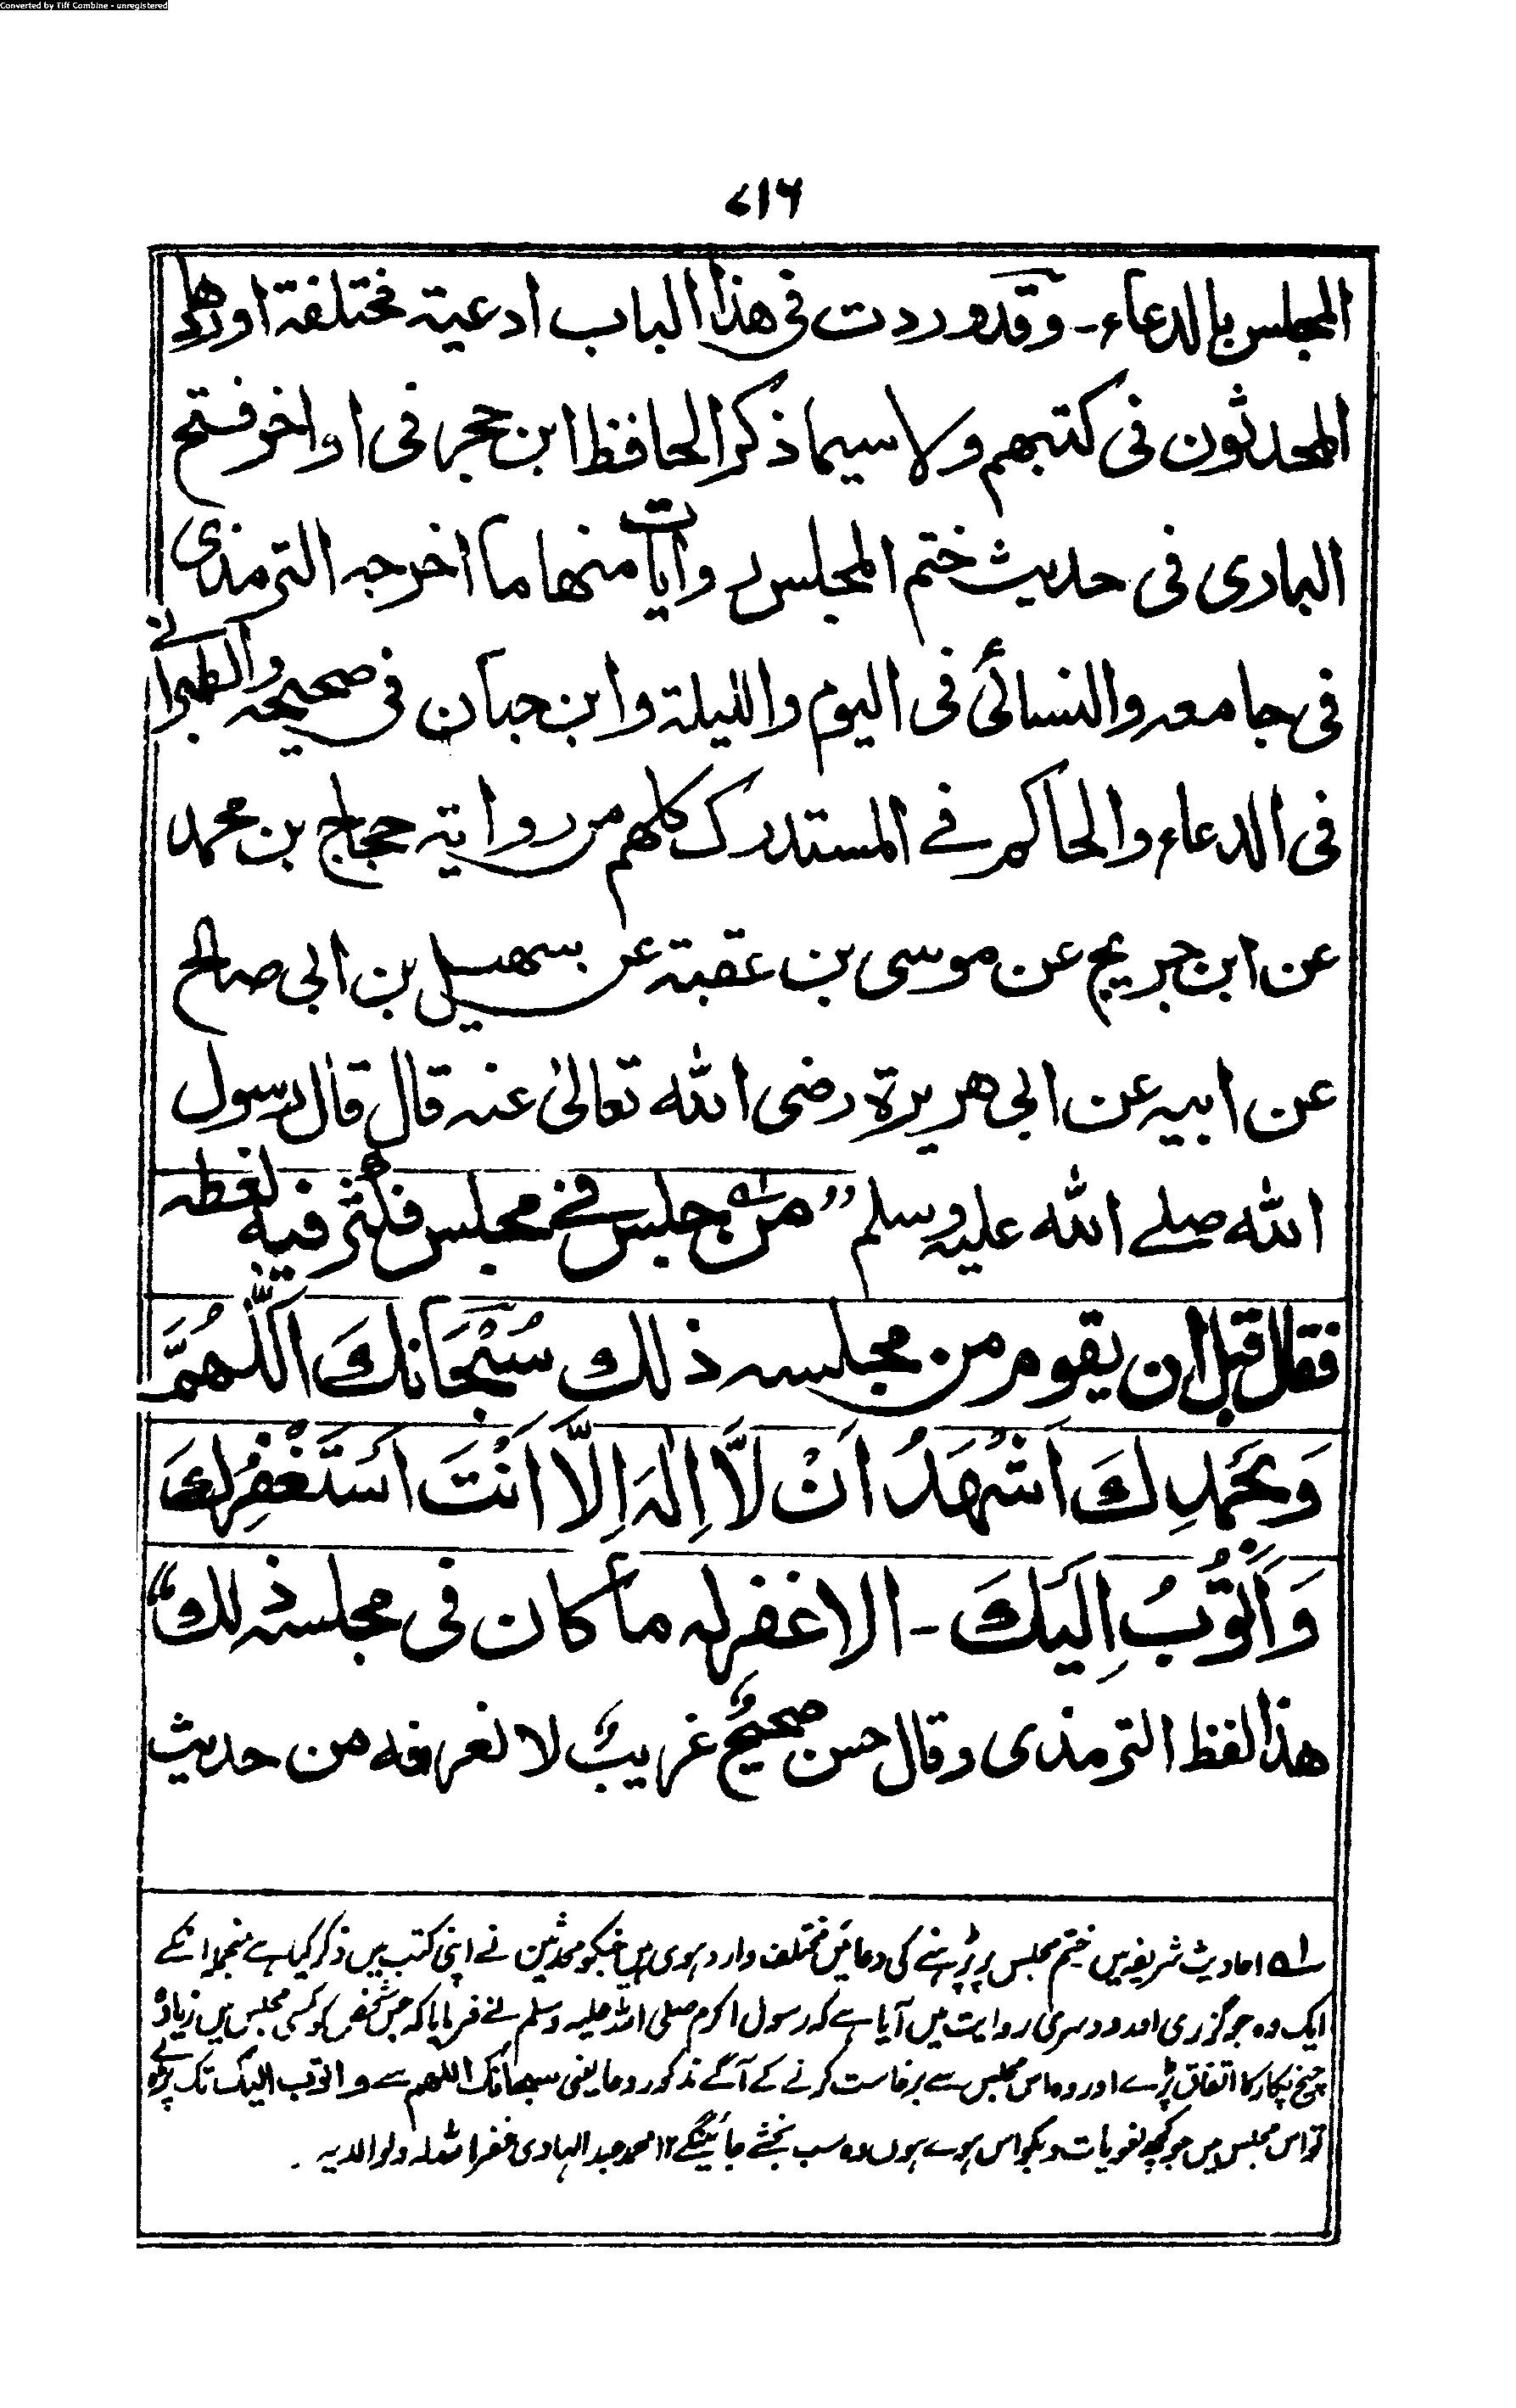 Converted by Tiff Combine - unregistered
۷۱۶
المجلس بالدعاء۔ وقد وردت فی هذا الباب ادعیة مختلفة اوردها
المحدثون فی کتبهم ولا سیما ذکر الحافظ ابن حجر فی اواخر فتح
الباری فی حدیث ختم المجلس روایات منها ما اخرجه الترمذی
فی جامعه والنسائی فی الیوم واللیلة وابن حبان فی صحیحه والطبرانے
فی الدعاء والحاکم فے المستدرک کلهم من روایة حجاج بن محمد
عن ابن جریج عن موسی بن عقبة عن سهیل بن ابی صالح
عن ابیه عن ابی هریرة رضی الله تعالیٰ عنه قال قال رسول
الله صلے الله علیه وسلم ”من۱ جلس فے مجلس فکثر فیه لغطه
فقال قبل ان یقوم من مجلسه ذلك سُبْحَانَكَ اَللّٰهُمَّ
وَبِحَمْدِكَ اَشْهَدُ اَنْ لَّا اِلٰهَ اِلَّا اَنْتَ اَسْتَغْفِرُكَ
وَاَتُوْبُ اِلَیْكَ ۔ الا غفر له ما کان فی مجلسه ذلك“
هذا لفظ الترمذی وقال حسن صحیحٌ غریبٌ لا نعرفه من حدیث
۱؎ احادیث شریفہ میں ختم مجلس پر پڑہنے کی دعائیں مختلف وارد ہوی ہیں جنکو محدثین نے اپنی کتب میں ذکر کیا ہے منجملہ انکے
ایک وہ جو گزری اور دوسری روایت میں آیا ہے کہ رسول اکرم صلی اللہ علیہ وسلم نے فرمایا کہ جس شخص کو کسی مجلس میں زیادہ
چیخ پکار کا اتفاق پڑے اور وہ اس مجلس سے برخاست کرنے کے آگے مذکور دعا یعنی سبحانک اللہم سے واتوب الیک تک پڑہ لے
تو اس مجلس میں جو کچھ لغویات و بکواس ہوے ہوں وہ سب بخشے جائینگے ۱۲ محمد عبدالہادی غفر اللہ لہ ولوالدیہ ۔